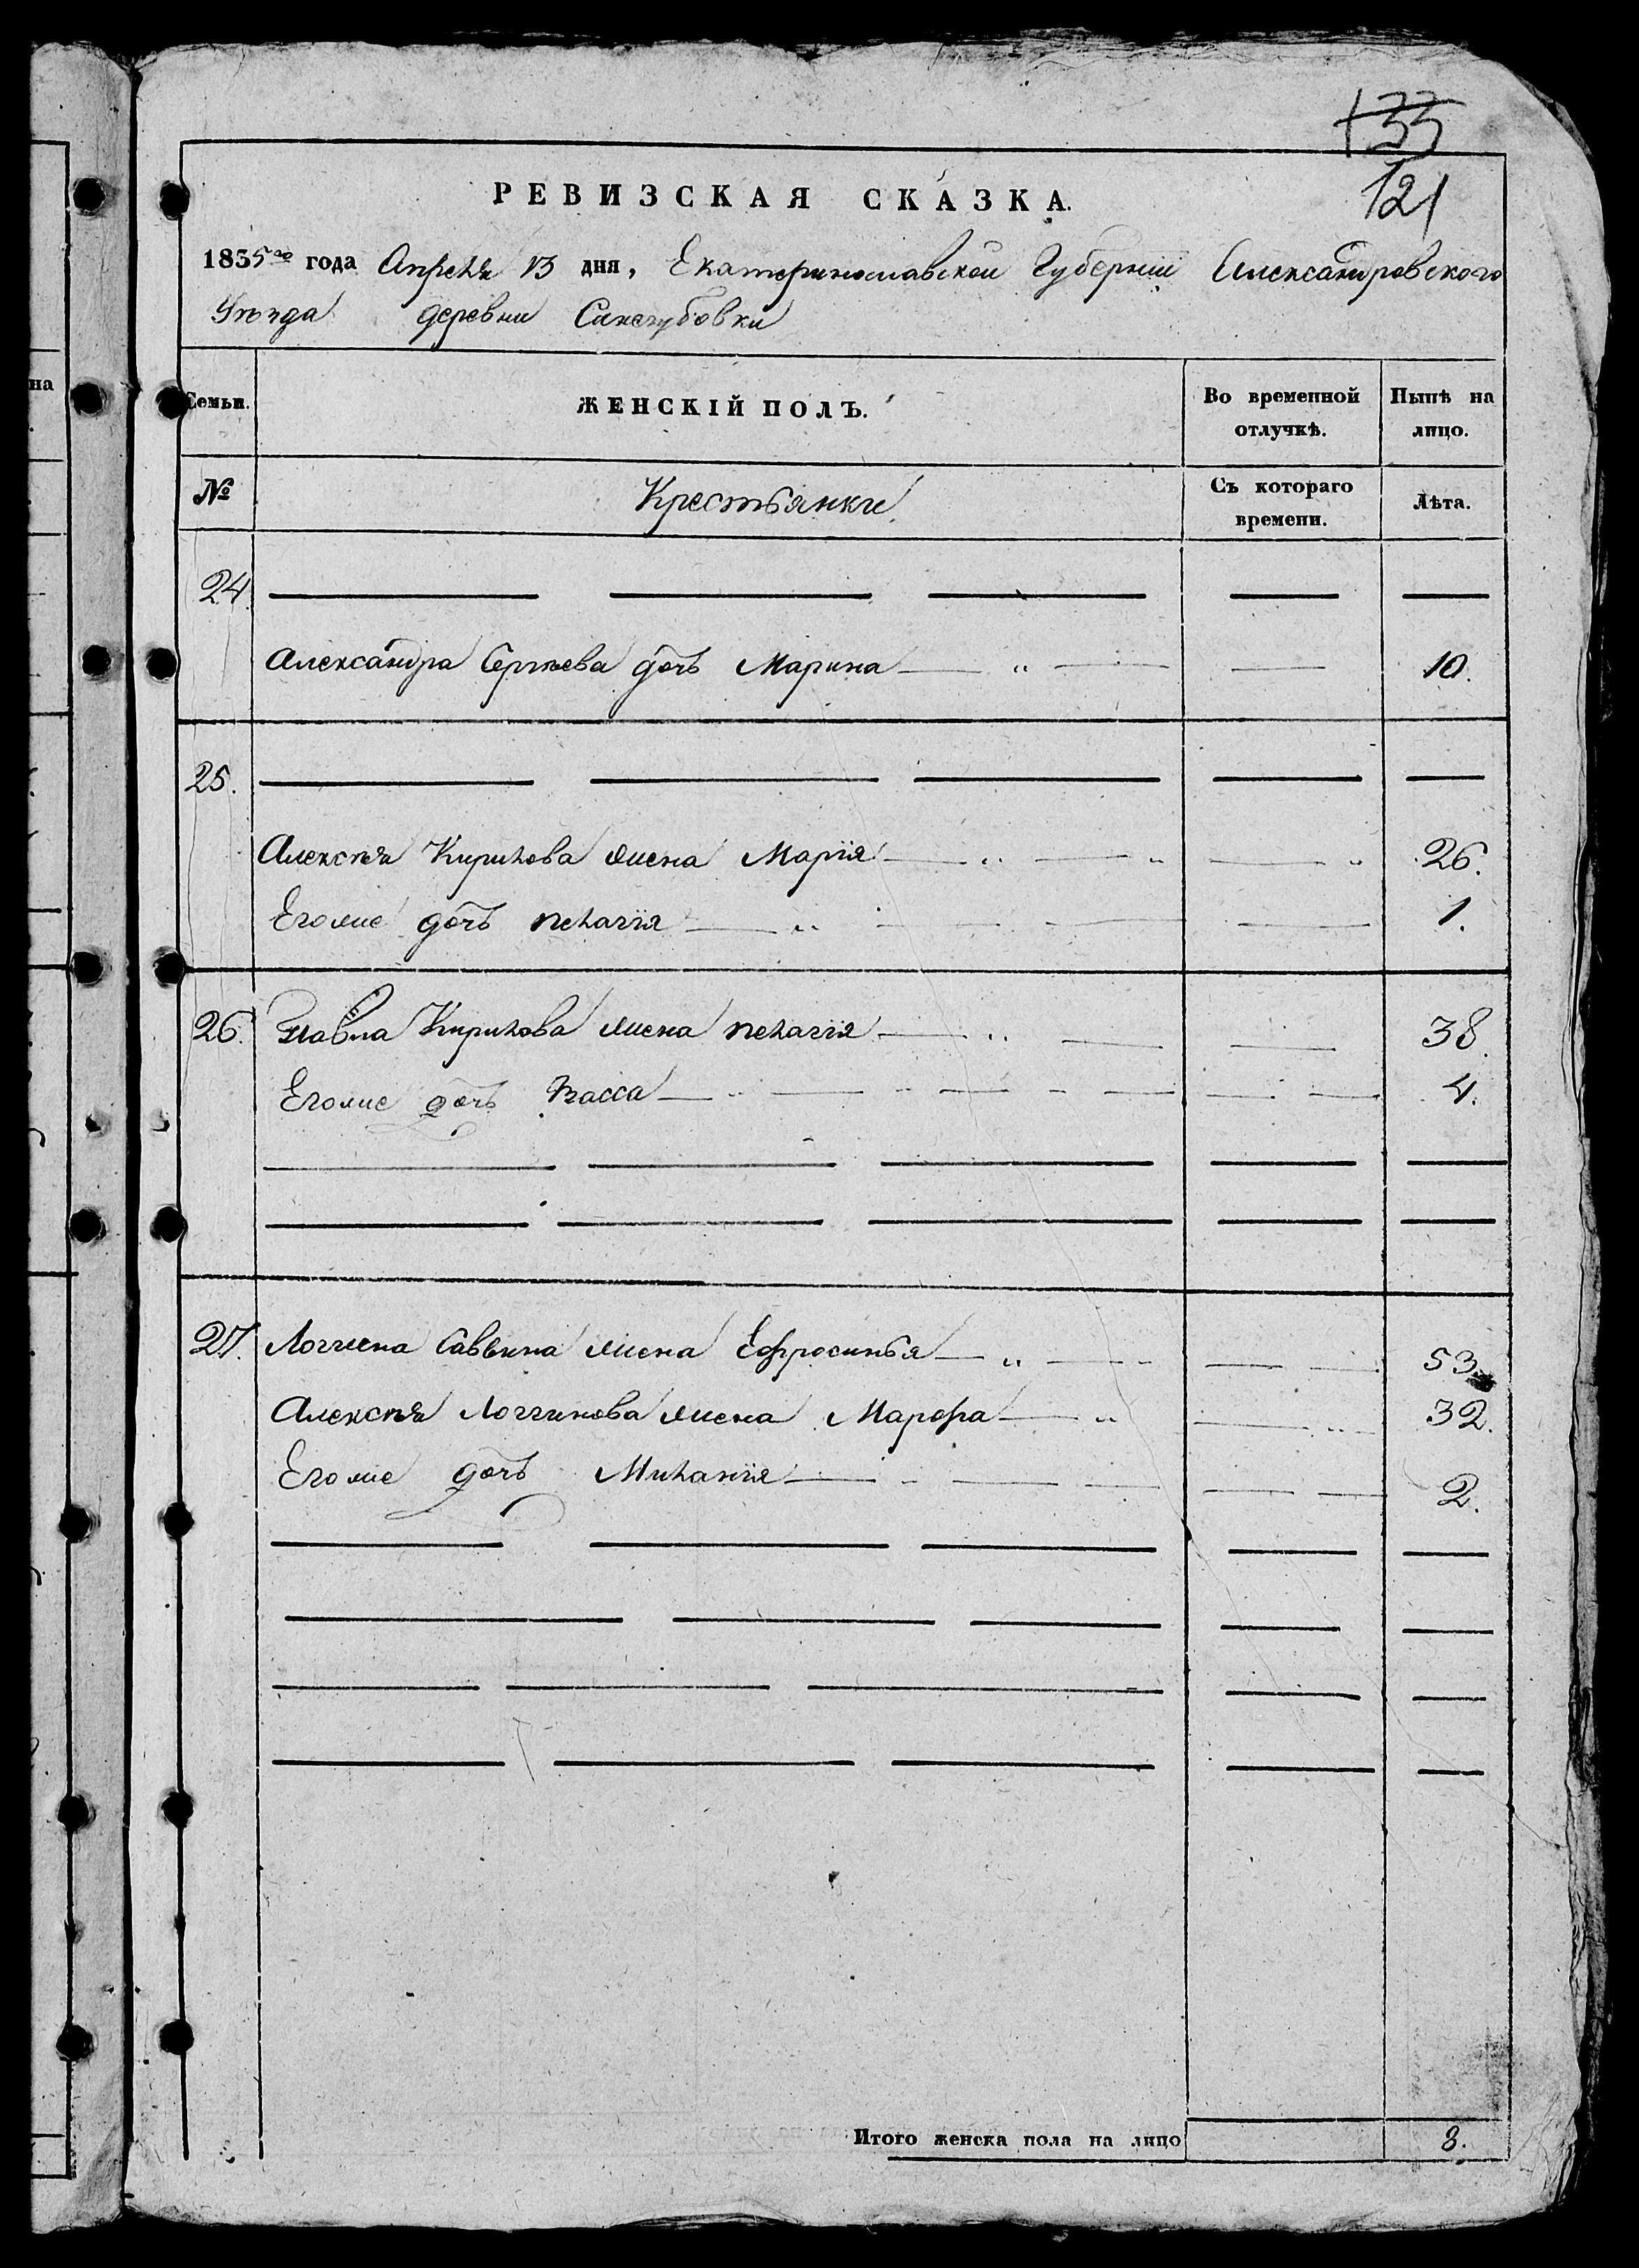 133
121
РЕВИЗСКАЯ СКАЗКА.
1835го года Апреля 13 дня, Екатеринославской Губернии Александровского
Уѣзда деревни Санжубовки
Семьи. ЖЕНСКІЙ ПОЛЪ. Во временной отлучкѣ. Нынѣ на лицо.
№ Крестьянки Съ котораго времени. Лѣта.
24.
Александра Сергѣева дочь Марина 10.
25.
Алексѣя Кирилова жена Марія 26.
Егоже дочь пелагія 1.
26. Павла Кирилова жена пелагія 38.
Егоже дочь Васса 4.
27. Логгина Саввина жена Ефросинья 53.
Алексѣя Логгинова жена Марфа 32.
Егоже дочь Миланія 2.
Итого женска пола на лицо 8.
на